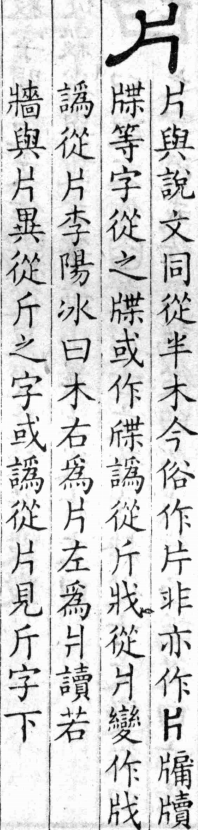 片
片與說文同從半木今俗作片非亦作片牖牘
牒等字從之牒或作牒譌從斤戕從爿變作戕
譌從片李陽冰曰木右爲片左爲爿讀若
牆與片異從斤之字或譌從片見斤字下